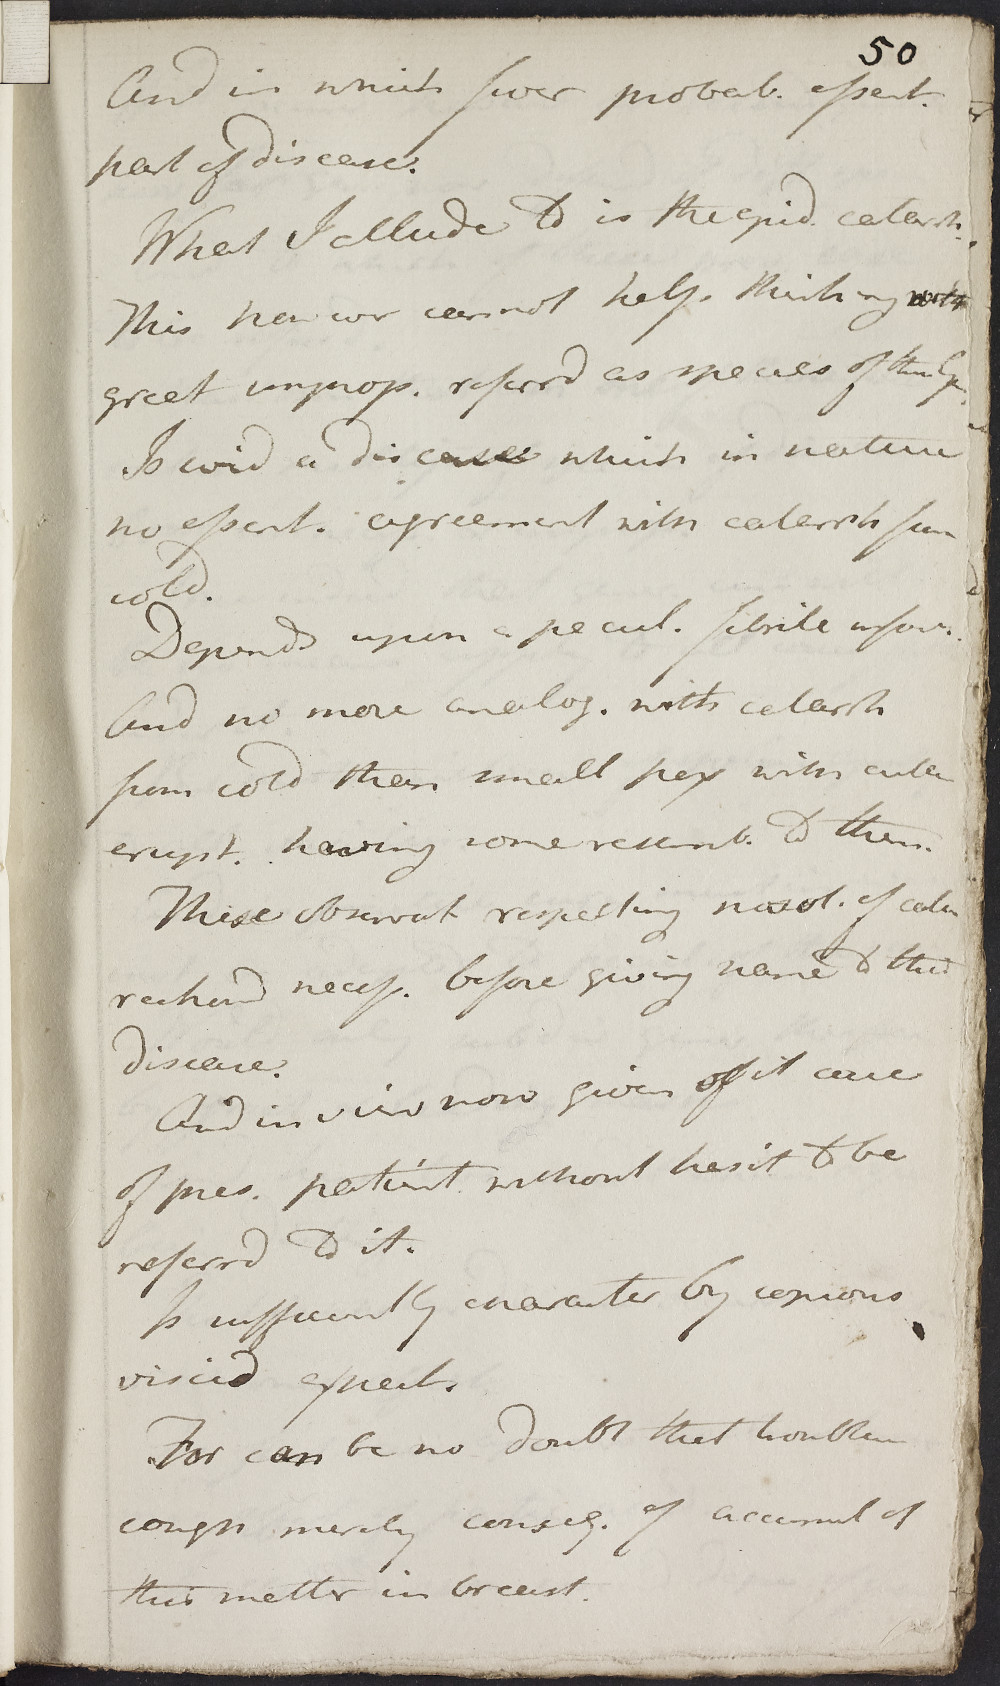 50
And in which fever probab. essent.
part of disease.
What I allude to is the epid. catarrh.
This however cannot help thinking with
great improp. referrd as species of this
Is void a disease which in nature
no essent. agreement with catarrh from
cold.
Depends upon a pecul. febrile
And no more analog. with catarrh
from cold then small pox with cutan
erupt. having some resemb. to them.
These observat respecting nosol. of catar
reckond necess. before giving name to this
disease.
And in view now given of it case
of pres. patient without hesit to be
referrd to it.
Is sufficiently character by copious
viscid expect.
For can be no doubt that troublem
cough merely conseq. of accumul of
this matter in breast.